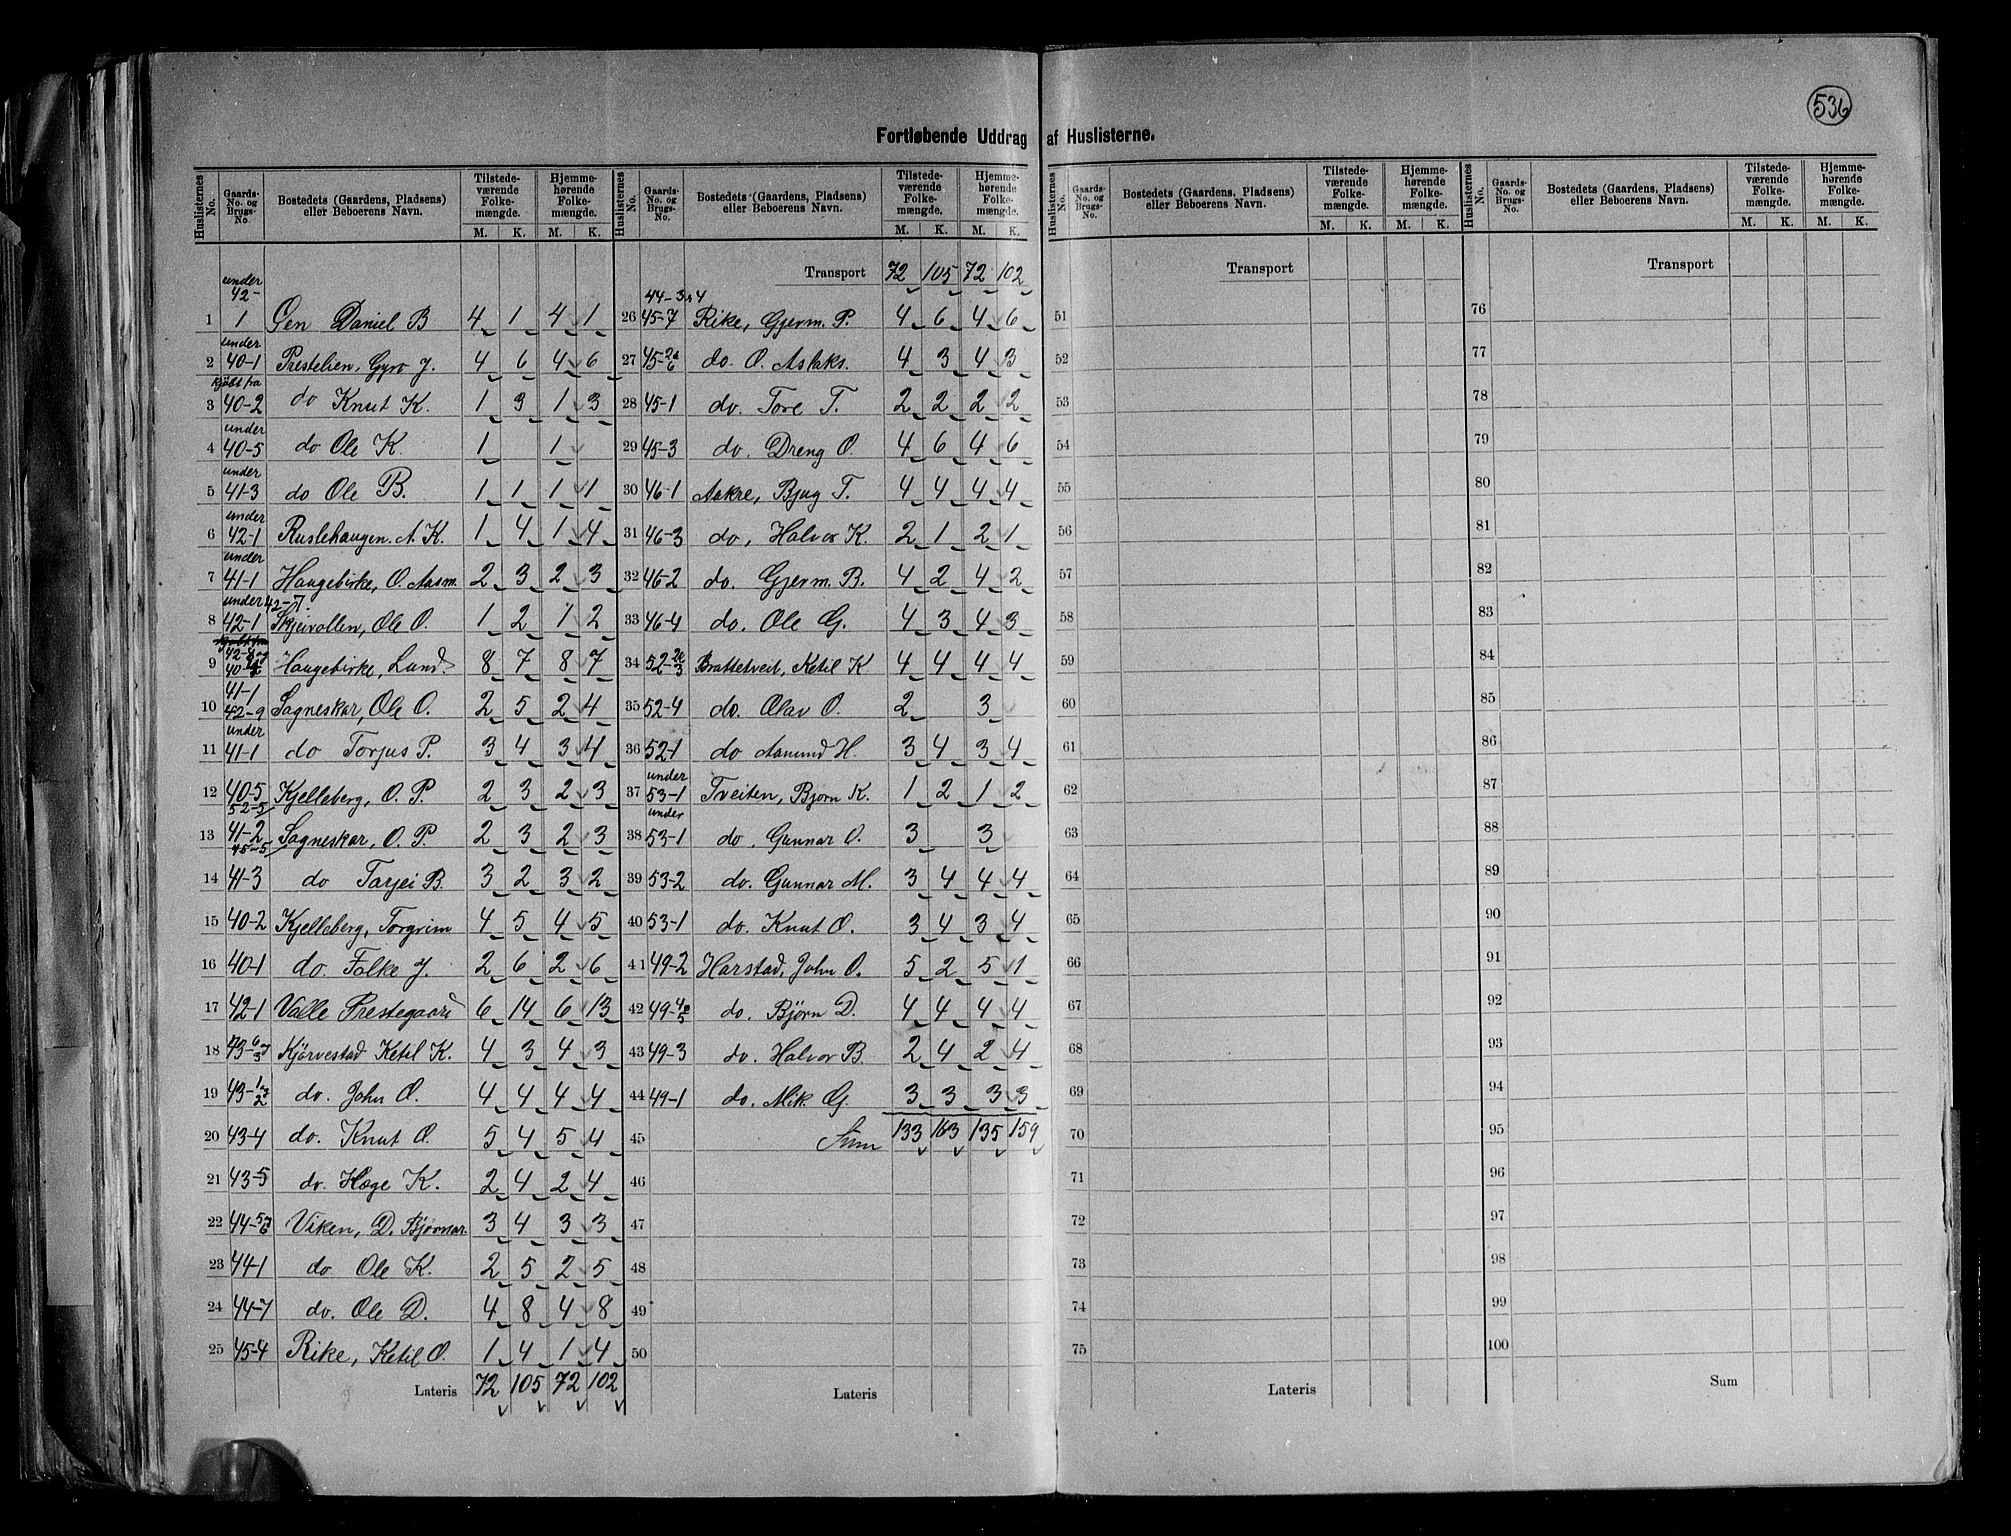 536
Fortløbende Uddrag af Huslisterne.
Huslisternes No. Gaards-No. og Brugs-No. Bostedets (Gaardens, Pladsens) eller Beboerens Navn. Tilstedeværende Folkemængde. M. K. Hjemmehørende Folkemængde. M. K.
under 42-
1 1 Øen Daniel B 4 1 4 1
under
2 40-1 Prestelien, Gyro J. 4 6 4 6
kjøbt fra
3 40-2 do Knut K. 1 3 1 3
under
4 40-5 do Ole K. 1 1
under
5 41-3 do Ole B. 1 1 1 1
under
6 42-1 Ruslehaugen. A. K. 1 4 1 4
under
7 41-1 Haugebirke, O. Aasm. 2 3 2 3
under 42-7.
8 42-1 Skjeivollen, Ole O. 1 2 1 2
42-8 og
9 Haugebirke, Lund 8 7 8 7
41-1
10 42-9 Sagneskar, Ole O. 2 5 2 4
under
11 41-1 do Torjus P. 3 4 3 4
12 40-5 Kjelleberg, O. P. 2 3 2 3
52-5
13 41-2 Sagneskar, O. P. 2 3 2 3
45-5
14 41-3 do Tarjei B. 3 2 3 2
15 40-2 Kjelleberg, Torgrim 4 5 4 5
16 40-1 do. Folke J. 2 6 2 6
17 42-1 Valle Prestegaard 6 14 6 13
18 43-6 og 3 Kjörvestad Ketil K. 4 3 4 3
19 43-1 og 2 do. John O. 4 4 4 4
20 43-4 do. Knut O. 5 4 5 4
21 43-5 do. Hæge K. 2 4 2 4
22 44-5 og 6 Viken, D. Bjørnar. 3 4 3 3
23 44-1 do Ole K. 2 5 2 5
24 44-7 do. Ole D. 4 8 4 8
25 45-4 Rike, Ketil O. 1 4 1 4
Lateris 72 105 72 102
Huslisternes No. Gaards-No. og Brugs-No. Bostedets (Gaardens, Pladsens) eller Beboerens Navn. Tilstedeværende Folkemængde. M. K. Hjemmehørende Folkemængde. M. K.
Transport 72 105 72 102
44-3 & 4
26 45-7 Rike, Gjerm. P. 4 6 4 6
27 45-2 & 6 do. O. Aslaks. 4 3 4 3
28 45-1 do. Tore T. 2 2 2 2
29 45-3 do. Dreng O. 4 6 4 6
30 46-1 Aakre, Bjug T. 4 4 4 4
31 46-3 do, Halvor K. 2 1 2 1
32 46-2 do. Gjerm. B. 4 2 4 2
33 46-4 do. Ole G. 4 3 4 3
34 52-2 & 3 Brattetveit, Ketil K 4 4 4 4
35 52-4 do. Olav O. 2 3
36 52-1 do Aanund H. 3 4 3 4
under
37 53-1 Tveiten, Bjørn K. 1 2 1 2
under
38 53-1 do. Gunnar O. 3 3
39 53-2 do. Gunnar M. 3 4 4 4
40 53-1 do. Knut O. 3 4 3 4
41 49-2 Harstad, John O. 5 2 5 1
42 49-4 & 5 do. Björn D. 4 4 4 4
43 49-3 do. Halvor B. 2 4 2 4
44 49-1 do. Mik. G. 3 3 3 3
45 Sum 133 163 135 159
46
47
48
49
50
Lateris
Huslisternes No. Gaards-No. og Brugs-No. Bostedets (Gaardens, Pladsens) eller Beboerens Navn. Tilstedeværende Folkemængde. M. K. Hjemmehørende Folkemængde. M. K.
Transport
51
52
53
54
55
56
57
58
59
60
61
62
63
64
65
66
67
68
69
70
71
72
73
74
75
Lateris
Huslisternes No. Gaards-No. og Brugs-No. Bostedets (Gaardens, Pladsens) eller Beboerens Navn. Tilstedeværende Folkemængde. M. K. Hjemmehørende Folkemængde. M. K.
Transport
76
77
78
79
80
81
82
83
84
85
86
87
88
89
90
91
92
93
94
95
96
97
98
99
100
Sum